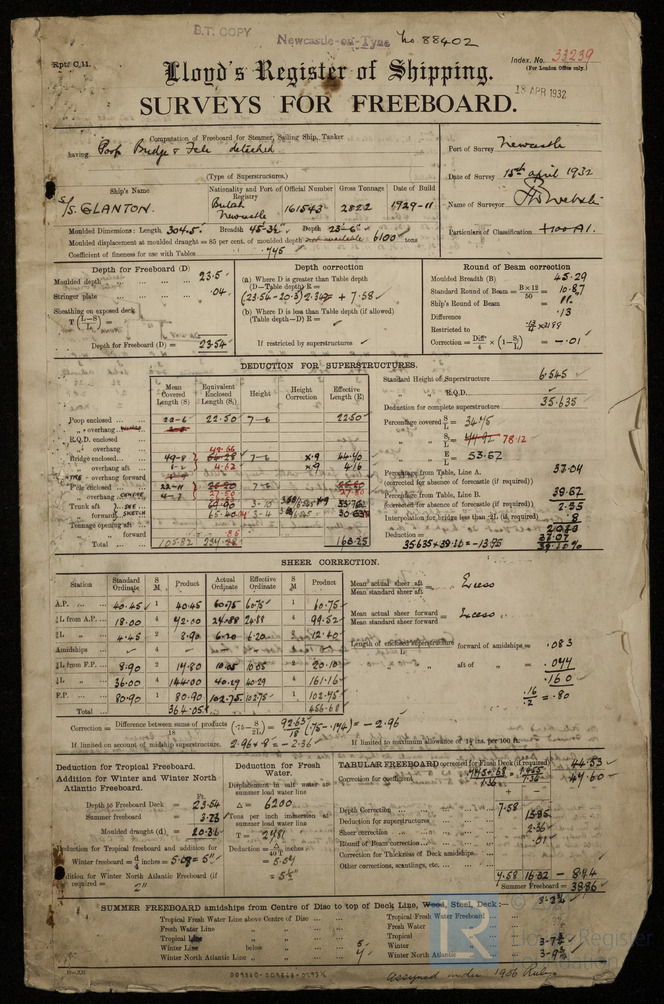 B.T. COPY
Newcastle-on-Tyne
No. 88402
Rpt. C.11.
Index. No. 33239
(For London Office only.)
Lloyd's Register of Shipping.
18 APR 1932
SURVEYS FOR FREEBOARD.
Computation of Freeboard for Steamer, Sailing Ship, Tanker
having Poop Bridge & Fcle detached
(Type of Superstructures.)
Port of Survey Newcastle
Date of Survey 15th April 1932
Name of Surveyor
Particulars of Classification +100 A1.
Ship's Name
Nationality and Port of Registry
Official Number
Gross Tonnage
Date of Build
S/S. GLANTON.
British Newcastle
161543
2822
1929-11
Moulded Dimensions: Length 304.5' Breadth 45-3½" Depth 23-6"
Moulded displacement at moulded draught = 85 per cent. of moulded depth 6100 tons
Coefficient of fineness for use with Tables .745
Depth for Freeboard (D)
Moulded depth 23.5
Stringer plate .04
Sheathing on exposed deck
T (L-S/L) =
Depth for Freeboard (D) = 23.54
Depth correction
(a) Where D is greater than Table depth
(D—Table depth) R =
(23.54-20.3) 2.342 = + 7.58
(b) Where D is less than Table depth (if allowed)
(Table depth—D) R =
If restricted by superstructures
Round of Beam correction
Moulded Breadth (B) 45.29
Standard Round of Beam = B×12/50 = 10.87
Ship's Round of Beam = 11.
Difference .13
Restricted to
Correction = Diff/4 × (1-S/L) = -.01
DEDUCTION FOR SUPERSTRUCTURES.
Mean Covered Length (S)
Equivalent Enclosed Length (S1)
Height
Height Correction
Effective Length (E)
Poop enclosed 22-6 22.50 7-6 22.50
" overhang
R.Q.D. enclosed
" overhang
Bridge enclosed 49-8 7-6 ×.9 44.40
" overhang aft 4.62 ×.9 4.16
" overhang forward
Fcle enclosed 22-11 7-6
" overhang 4-7 27.50 27.50
Trunk aft
" forward
Tonnage opening aft
" forward
Total 105.82 168.25
Standard Height of Superstructure 6.545
" " R.Q.D.
Deduction for complete superstructure 35.635
Percentage covered S/L = 34.75
" " S1/L = 78.12
" " E/L = 53.62
Percentage from Table, Line A. 37.04
(corrected for absence of forecastle (if required))
Percentage from Table, Line B. 39.67
(corrected for absence of forecastle (if required))
Interpolation for bridge less than ·2L (if required)
Deduction =
35.635 × 39.10 = -13.95
39.10%
SHEER CORRECTION.
Station
Standard Ordinate
S M
Product
Actual Ordinate
Effective Ordinate
S M
Product
A.P. 40.45 1 40.45 60.75 60.75 1 60.75
⅙L from A.P. 18.00 4 72.00 24.88 24.88 4 99.52
⅓L " 4.45 2 8.90 6.20 6.20 2 12.40
Amidships – 4 – – – 4 –
⅓L from F.P. 8.90 2 17.80 10.05 10.05 2 20.10
⅙L " 36.00 4 144.00 40.29 40.29 4 161.16
F.P. 80.90 1 80.90 102.75 102.75 1 102.75
Total 364.05 456.68
Mean actual sheer aft / Mean standard sheer aft = Excess
Mean actual sheer forward / Mean standard sheer forward = Excess
Length of enclosed superstructure/L forward of amidships = .083
" " aft of " = .077
.160
.16/.2 = .80
Correction = Difference between sums of products/18 (.75 - S/2L) = 92.63/18 (.75-.174) = -2.96
If limited on account of midship superstructure. 2.96 × .8 = -2.36
If limited to maximum allowance of 1½ ins. per 100 ft.
Deduction for Tropical Freeboard.
Addition for Winter and Winter North Atlantic Freeboard.
Ft.
Depth to Freeboard Deck = 23.54
Summer freeboard = 3.23
Moulded draught (d) = 20.31
Deduction for Tropical freeboard and addition for
Winter freeboard = d/4 inches = 5.08 = 5"
Addition for Winter North Atlantic Freeboard (if required) = 2"
Deduction for Fresh Water.
Displacement in salt water at summer load water line
Δ = 6200
Tons per inch immersion at summer load water line
T = 27.81
Deduction = Δ/40T inches
= 5.57
= 5½"
TABULAR FREEBOARD corrected for Flush Deck (if required) 44.53
Correction for coefficient 47.60
+ –
Depth Correction 7.58
Deduction for superstructures 13.95
Sheer correction 2.36
Round of Beam correction .01
Correction for Thickness of Deck amidships
Other corrections, scantlings, etc.
7.58 16.32 – 8.74
Summer Freeboard = 38.86
SUMMER FREEBOARD amidships from Centre of Disc to top of Deck Line, Wood, Steel, Deck:—
Tropical Fresh Water Line above Centre of Disc
Fresh Water Line " "
Tropical Line " "
Winter Line below " " 5"
Winter North Atlantic Line " " 7"
Tropical Fresh Water Freeboard
Fresh Water "
Tropical "
Winter " 3-7¾
Winter North Atlantic " 3-9¾
LR
Lloyd's Register Foundation
009860-009868-0093½
assigned under 1906 Rules